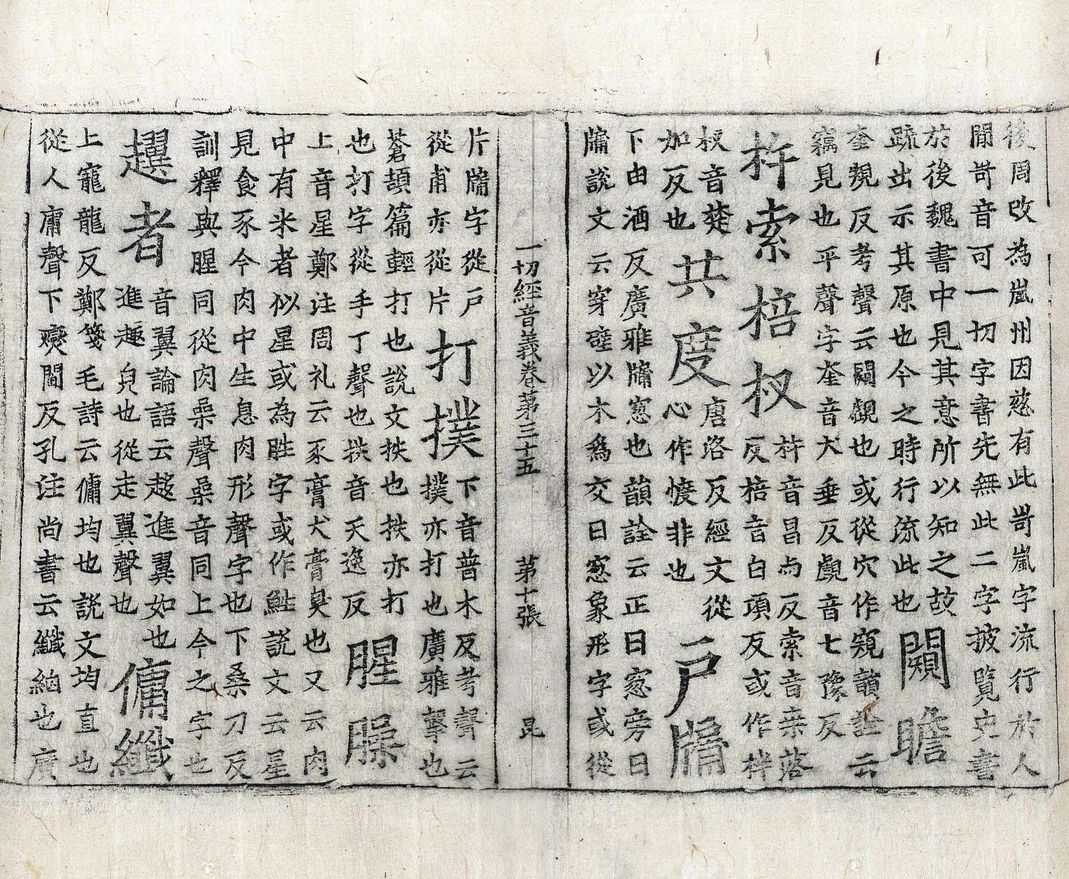 後周改為嵐州因慈有此岢嵐字流行於人
聞岢音可一切字書先無此二字披覽史書
於後魏書中見其意所以知之故
䟽出示其原也今之時行流此也
闚瞻
奎䂓反考聲云闚覩也或從穴作窺韻詮云
竊見也平聲字奎音犬垂反覷音七豫反
杵索棓杈
杵音昌与反索音桒落
反棓音白項反或作棒
杈音楚
加反也
共度
唐洛反經文從
心作㦜非也
戸牖
下由酒反廣雅牖窻也韻詮云正曰窻旁曰
牖說文云穿壁以木為交曰窓象形字或從
一切經音義卷第三十五 第十張 昆
片牖字從戸
從甫亦從片
打撲
下音普木反考聲云
撲亦打也廣雅擊也
蒼頡篇輕打也說文挟也挟亦打
也打字從手丁聲也挟音天逸反
腥臊
上音星鄭注周礼云豕膏犬膏臭也又云肉
中有米者似星或為胜字或作鮏說文云星
見食豕令肉中生息肉形聲字也下桑刀反
訓釋與腥同從肉喿聲喿音同上今之字也
趩者
音翼論語云趍進翼如也
進趣皃也從走翼聲也
傭纖
上寵龍反鄭箋毛詩云傭均也說文均直也
從人庸聲下爕閻反孔注尚書云纖細也廣